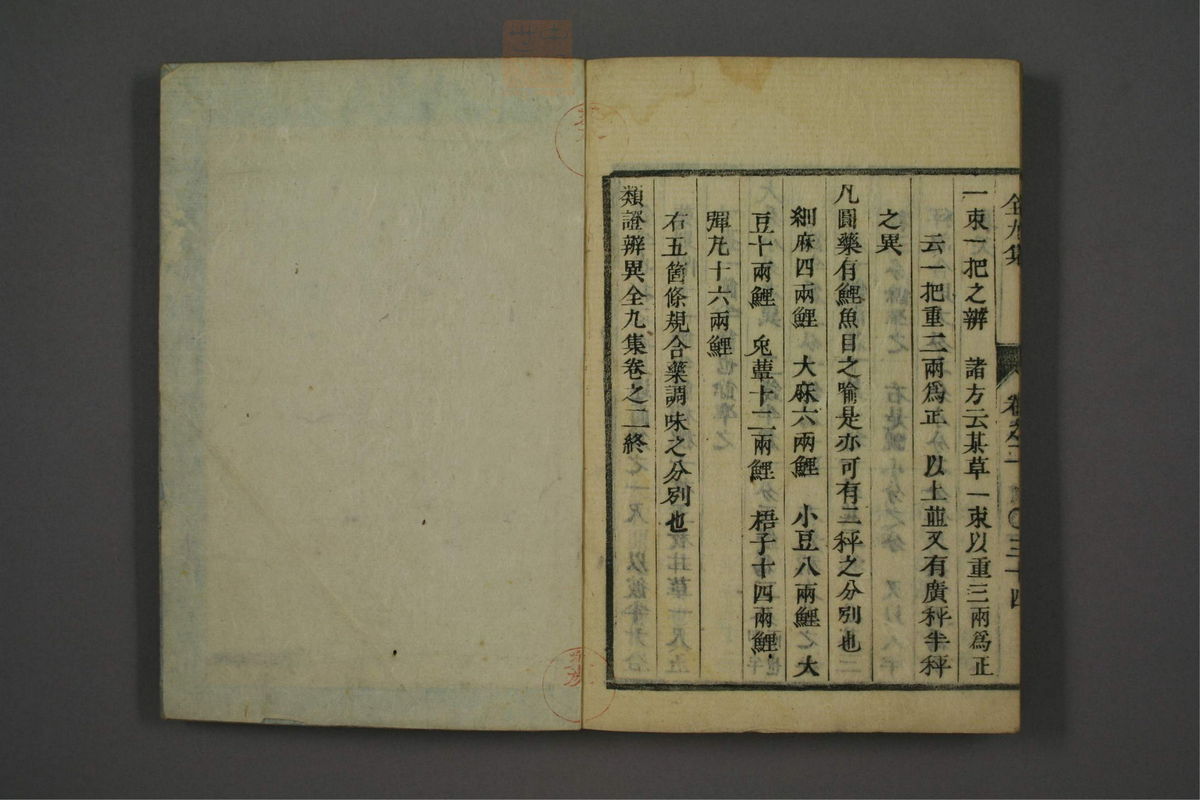 全九集 卷之二 〇三十四
一束一把之辨 諸方云某草一束以重三兩爲正
云一把重二兩爲正 以上並又有廣秤半秤
之異
凡圓藥有鯉魚目之喻是亦可有二秤之分別也
細麻四兩鯉 大麻六兩鯉 小豆八兩鯉 大
豆十兩鯉 兎蕈十二兩鯉 梧子十四兩鯉
彈丸十六兩鯉
右五箇條規合藥調味之分別也
類證辨異全九集卷之二終